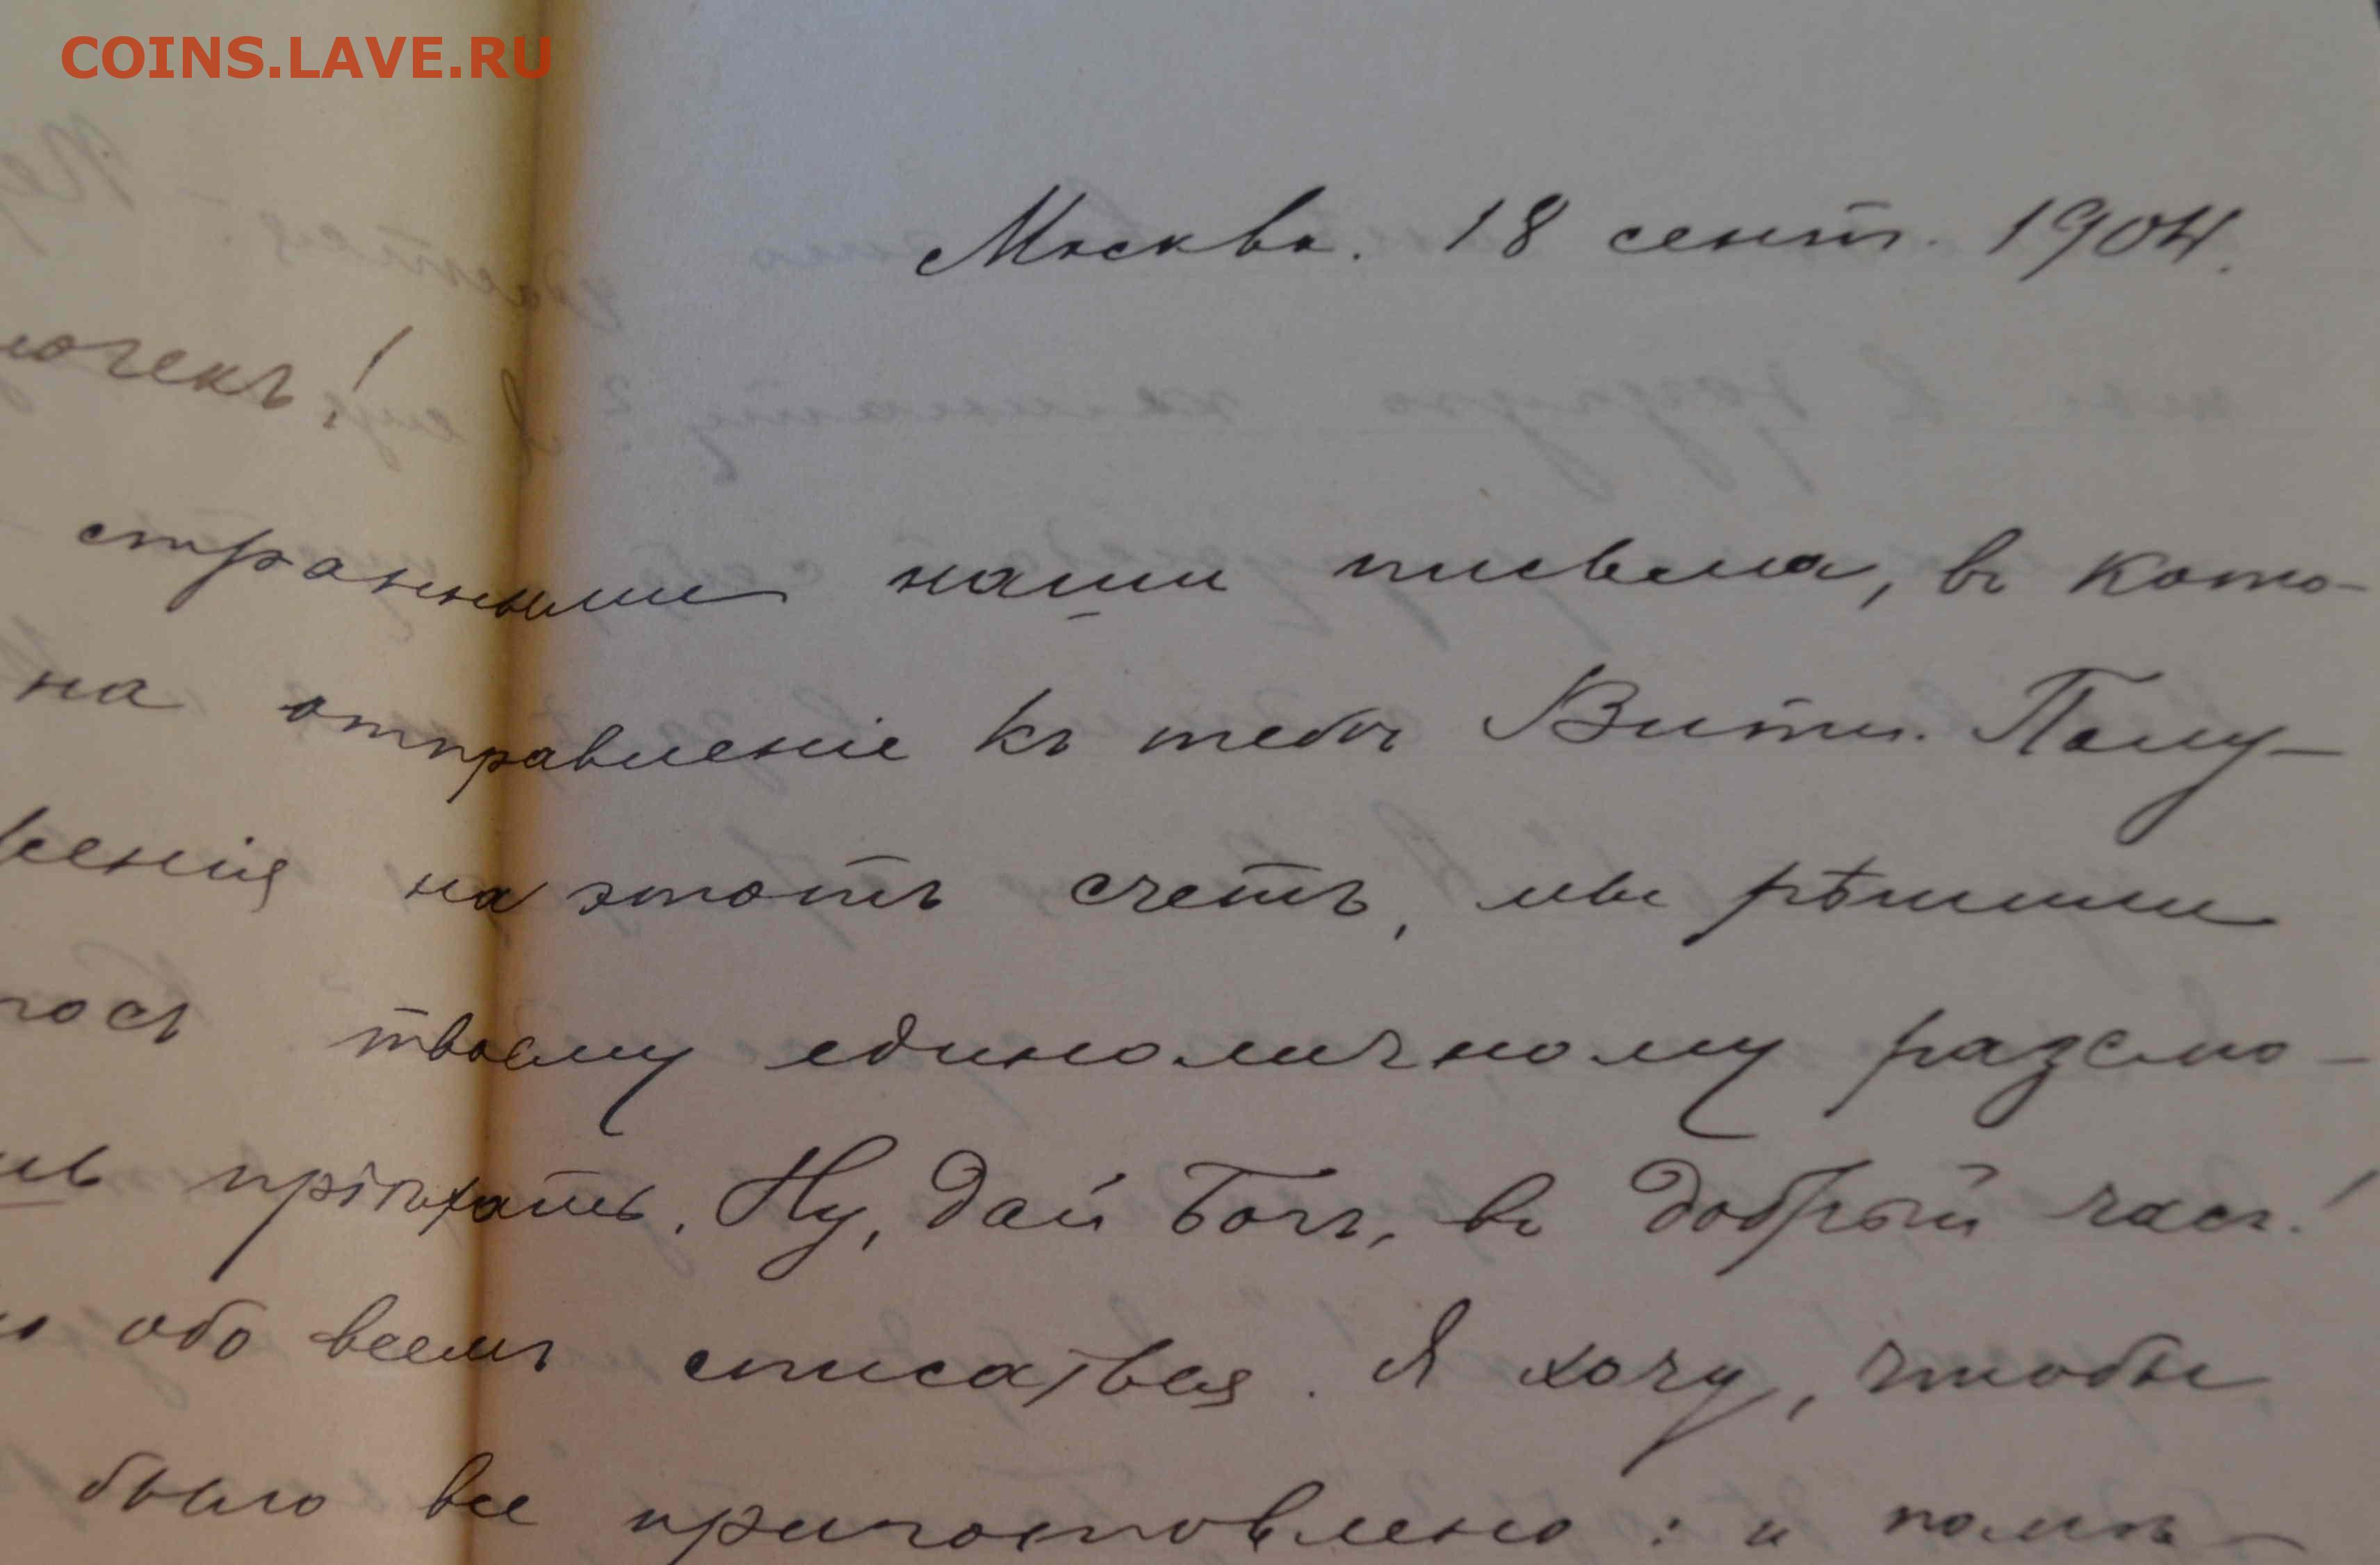 COINS.LAVE.RU
Москва. 18 сент. 1904.
странными наши письма, в кото-
на отправленіе къ тебѣ Вити. Полу-
женія на этотъ счетъ, мы рѣшили
твоему единоличному разсмо-
пріѣхать. Ну, дай Богъ, въ добрый часъ!
обо всемъ списаться. Я хочу, чтобы
было все приготовлено: и помѣ-